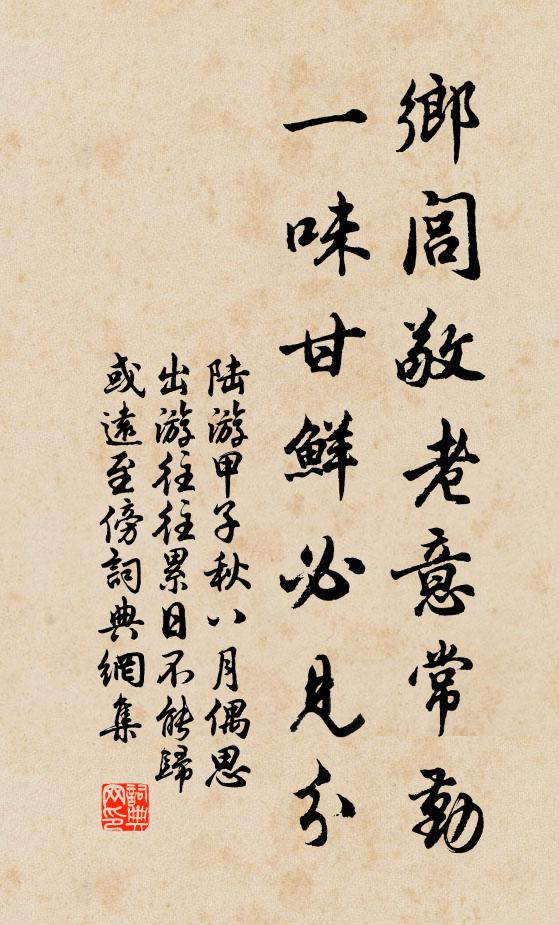 鄉閭敬老意常勤
一味甘鮮必見分
陸游甲子秋八月偶思
出游往往累日不能歸
或遠至傍詞典網集
詞典
网印